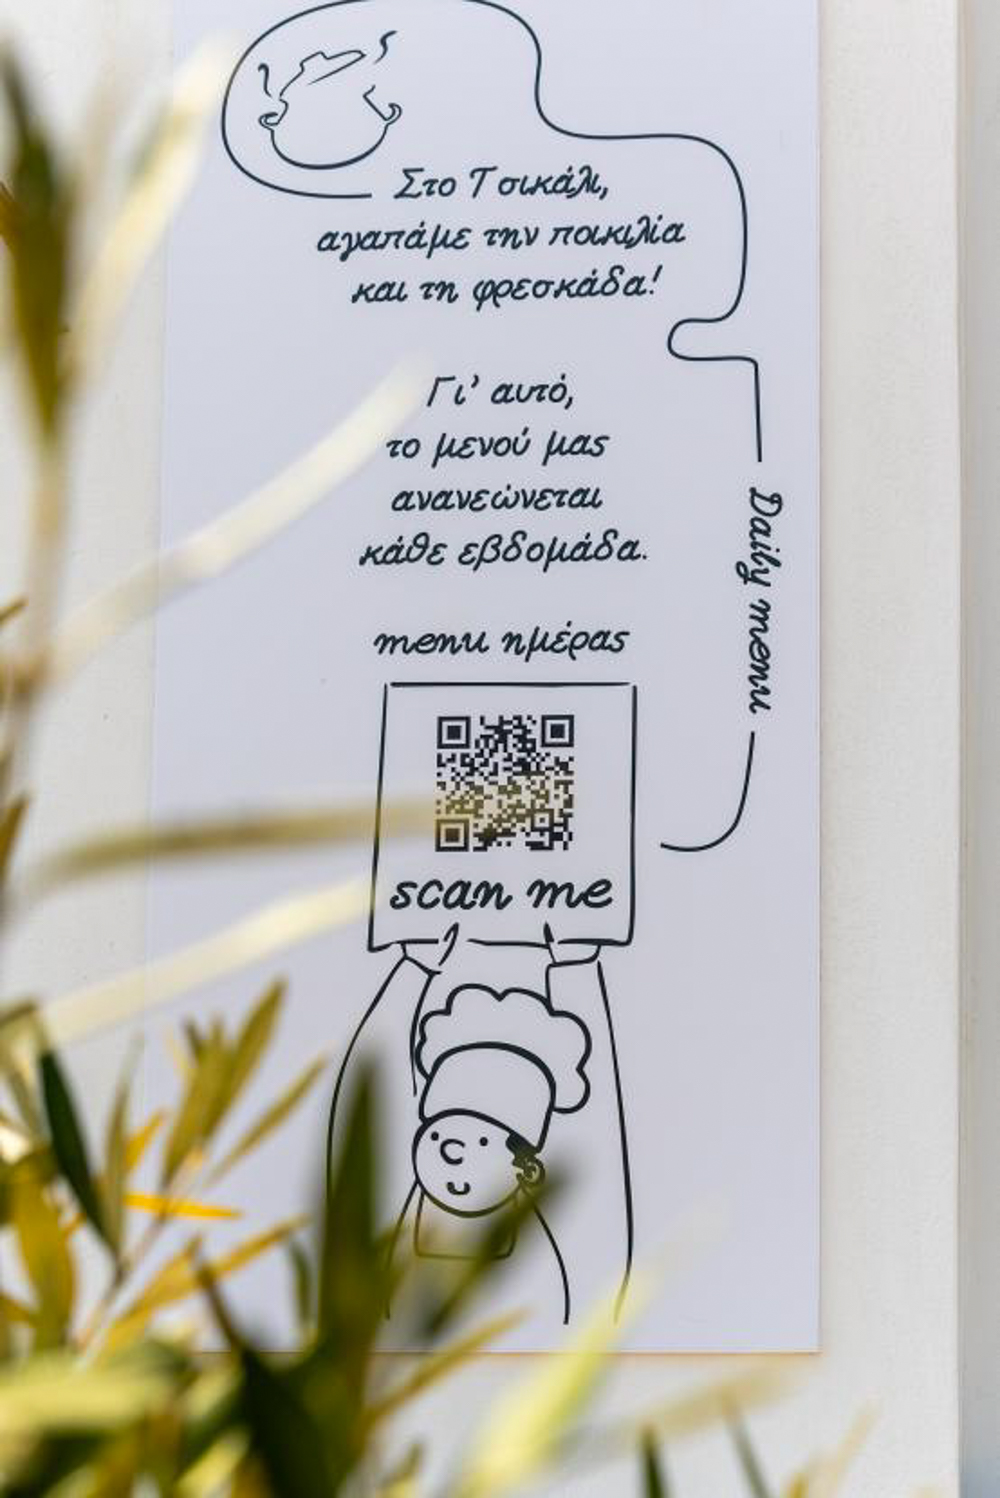 Στο Τσικάλι,
αγαπάμε την ποικιλία
και τη φρεσκάδα!
Γι' αυτό,
το μενού μας
ανανεώνεται
κάθε εβδομάδα.
Daily menu
menu ημέρας
scan me